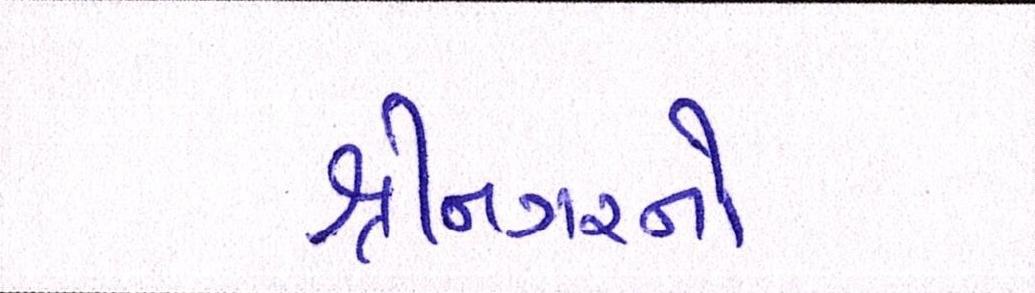 શ્રીનગરનો